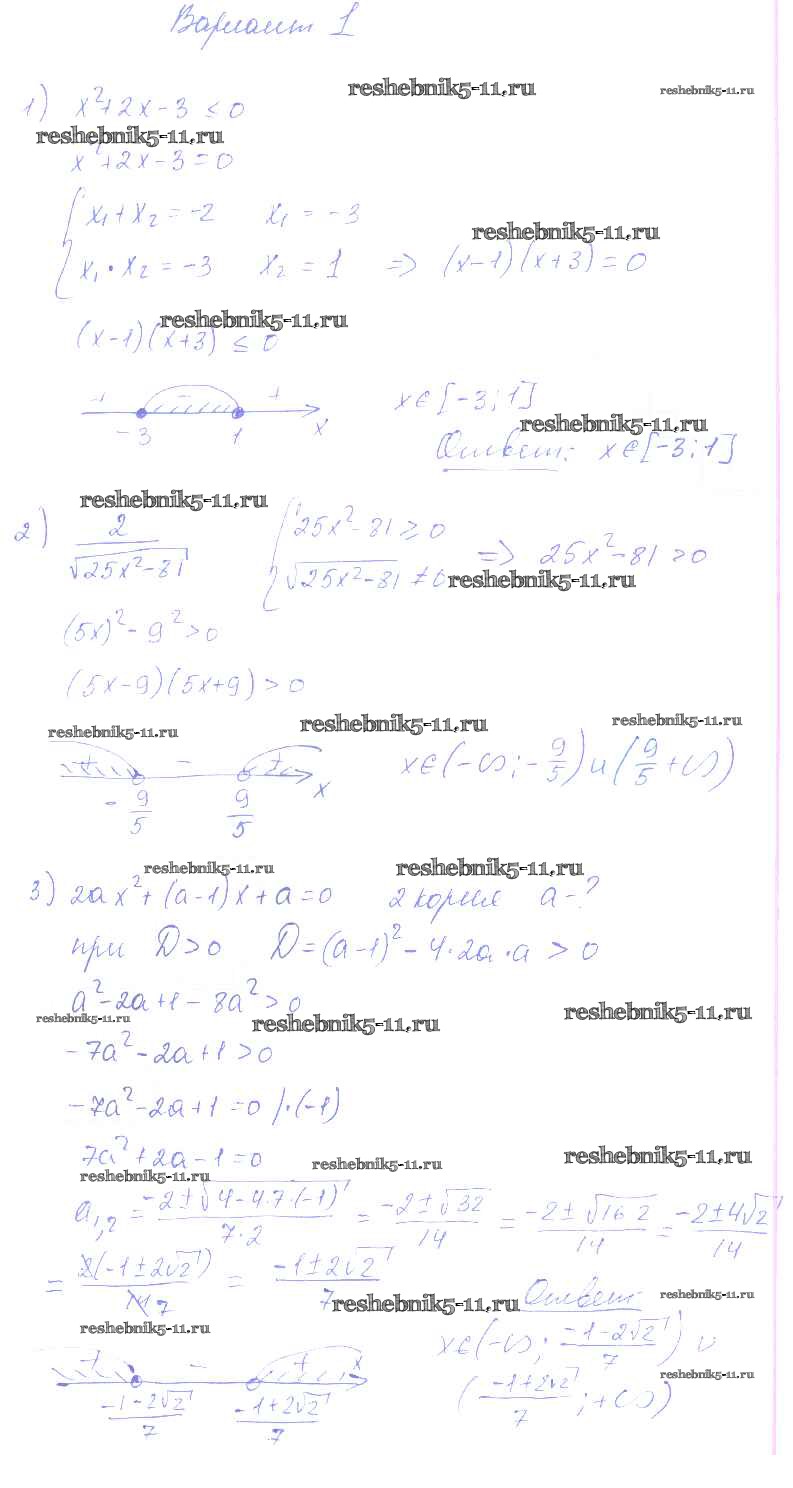 Вариант 1
reshebnik5-11.ru reshebnik5-11.ru
1) x²+2x-3 ≤ 0
reshebnik5-11.ru
x²+2x-3=0
{ x₁+x₂=-2 x₁=-3
reshebnik5-11.ru
x₁·x₂=-3 x₂=1 => (x-1)(x+3)=0
reshebnik5-11.ru
(x-1)(x+3) ≤ 0
+ - + x∈[-3;1]
-3 1 x
reshebnik5-11.ru
Ответ: x∈[-3;1]
reshebnik5-11.ru
2) 2/√(25x²-81) { 25x²-81 ≥ 0
√(25x²-81) ≠ 0 => 25x²-81>0
reshebnik5-11.ru
(5x)²-9²>0
(5x-9)(5x+9)>0
reshebnik5-11.ru reshebnik5-11.ru reshebnik5-11.ru
+ - + x∈(-∞;-9/5)∪(9/5 +∞)
-9/5 9/5 x
reshebnik5-11.ru reshebnik5-11.ru
3) 2ax²+(a-1)x+a=0 2 корня a-?
при D>0 D=(a-1)²-4·2a·a>0
a²-2a+1-8a²>0
reshebnik5-11.ru reshebnik5-11.ru reshebnik5-11.ru
-7a²-2a+1>0
-7a²-2a+1=0 |·(-1)
7a²+2a-1=0
reshebnik5-11.ru reshebnik5-11.ru reshebnik5-11.ru
a₁,₂ = (-2±√(4-4·7·(-1)))/(7·2) = (-2±√32)/14 = (-2±√(16·2))/14 = (-2±4√2)/14
= 2(-1±2√2)/14 7 = (-1±2√2)/7 Ответ:
reshebnik5-11.ru reshebnik5-11.ru
reshebnik5-11.ru
x∈(-∞; (-1-2√2)/7) ∪
+ - + x
reshebnik5-11.ru
(-1-2√2)/7 (-1+2√2)/7 ((-1+2√2)/7; +∞)